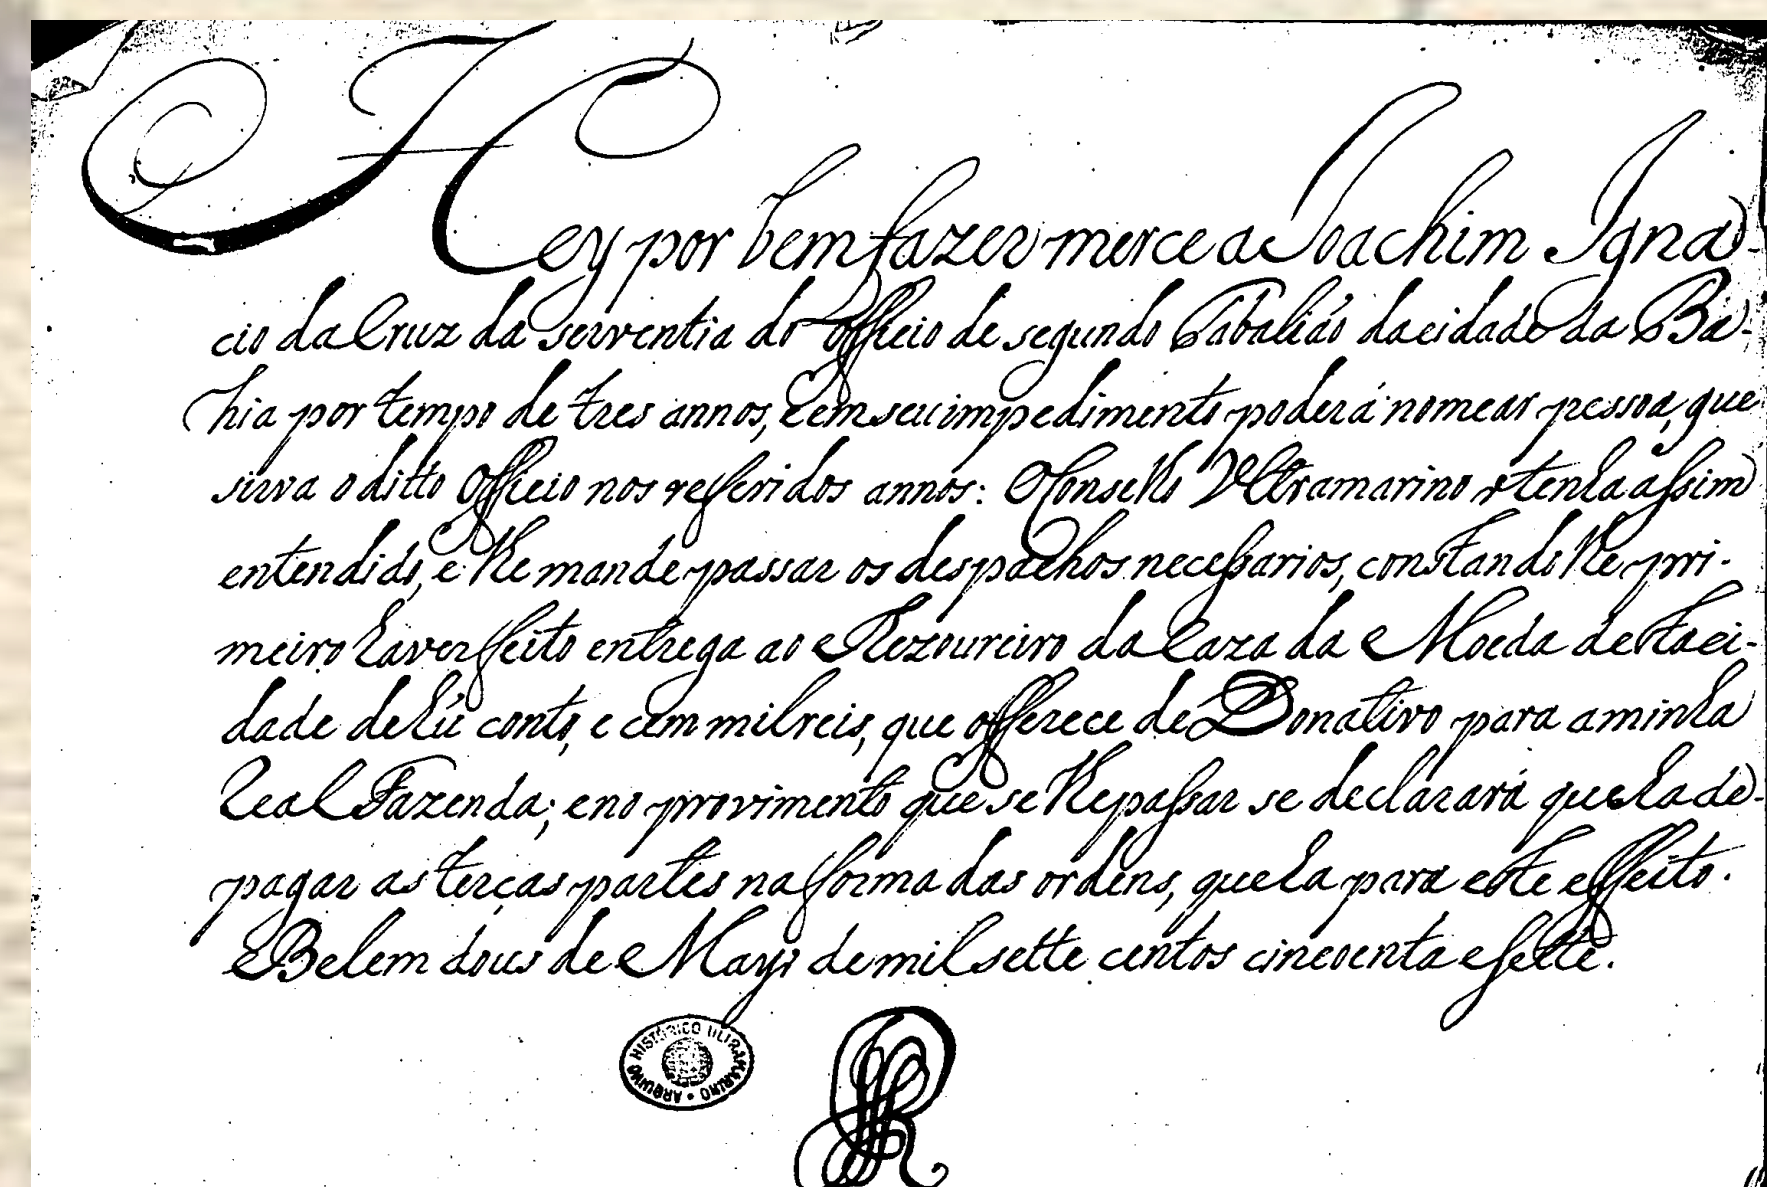 Hey por bem fazer merce a Joachim Igna-
cio da Cruz da serventia do officio de segundo Tabaliaõ da cidade da Ba-
hia por tempo de tres annos, e em seu impedimento poderá nomear pessoa, que
sirva o ditto officio nos referidos annos: O Conselho Ultramarino o tenha assim
entendido, e lhe mande passar os despachos necessarios, constandolhe pri-
meiro haver feito entrega ao Thezoureiro da Caza da Moeda desta ci-
dade de hũ conto, e cem mil reis, que offerece de Donativo para a minha
Real Fazenda; e no provimento que se lhe passar se declarará que ha de
pagar as terças partes na forma das ordens, que ha para este effeito.
Belem dous de Mayo de mil sette centos cincoenta e sette.
ARQUIVO HISTÓRICO ULTRAMARINO